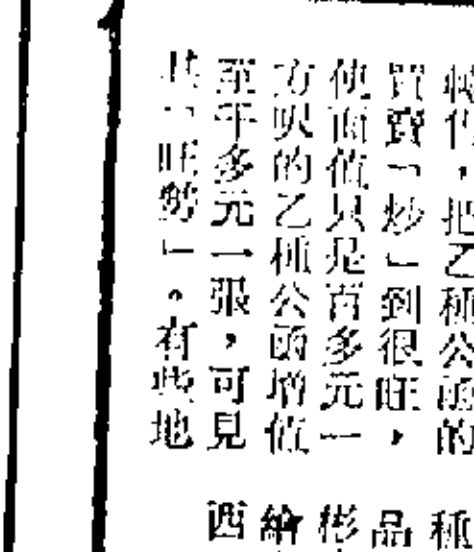 ，把乙種公函的
買賣「炒」到很旺，
使面值只是百多元一
方呎的乙種公函增值
至千多元一張，可見
其「旺勢」。有些地
種
品
彬
繪
西